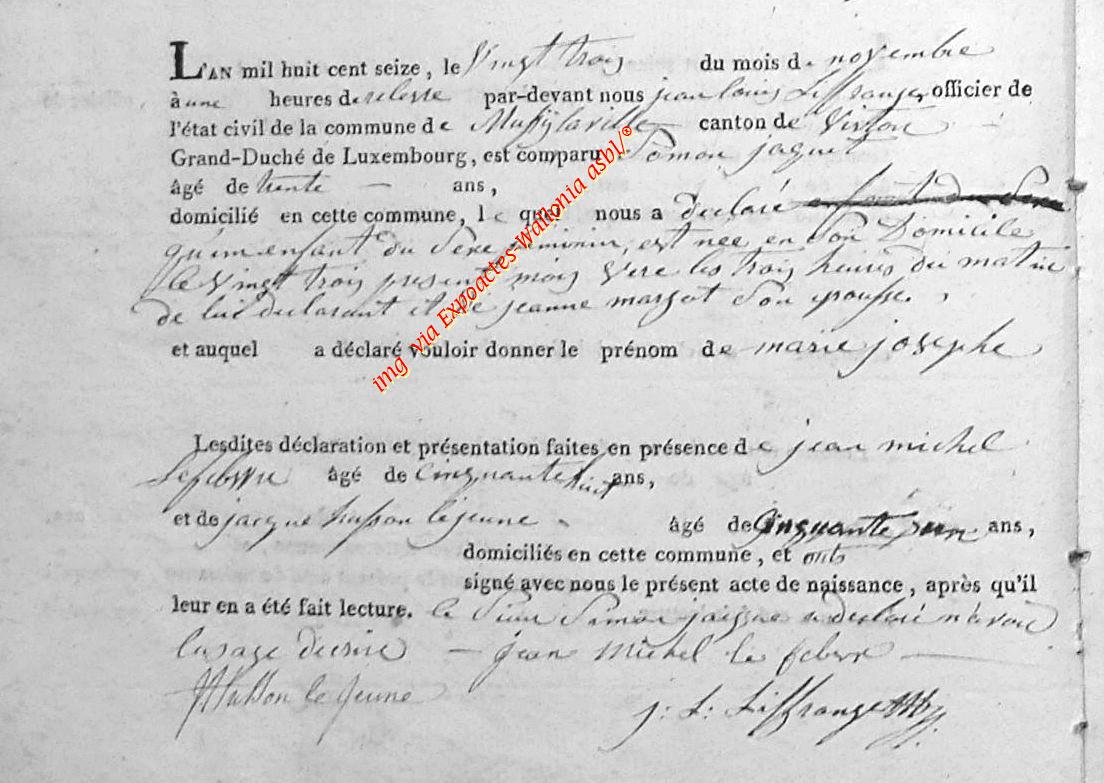 L'AN mil huit cent seize, le Vingt trois du mois de novembre
à une heures de relevée par-devant nous jean louis Liffrange, officier de
l'état civil de la commune de Mussylaville canton de Virton
Grand-Duché de Luxembourg, est comparu Simon jaquet
âgé de trente ans,
domicilié en cette commune, le quel nous a déclaré
qu'un enfant du Sexe feminin, est nee en Son Domicile
le vingt trois present mois Vere les trois heures du matin
de lui declarant et de jeanne margot Son epousse.
et auquel a déclaré vouloir donner le prénom de marie josephe
Lesdites déclaration et présentation faites en présence de jean michel
Lefebvre âgé de Cinquante huit ans,
et de jacque husson lejeune âgé de Cinquante ans,
domiciliés en cette commune, et onts
signé avec nous le présent acte de naissance, après qu'il
leur en a été fait lecture. le Sieur Simon a declaré n'avoir
lusage decrire — jean Michel le febvre
Husson le Jeune
j: L: Liffrange
img via Expoactes-Wallonia asbl/®